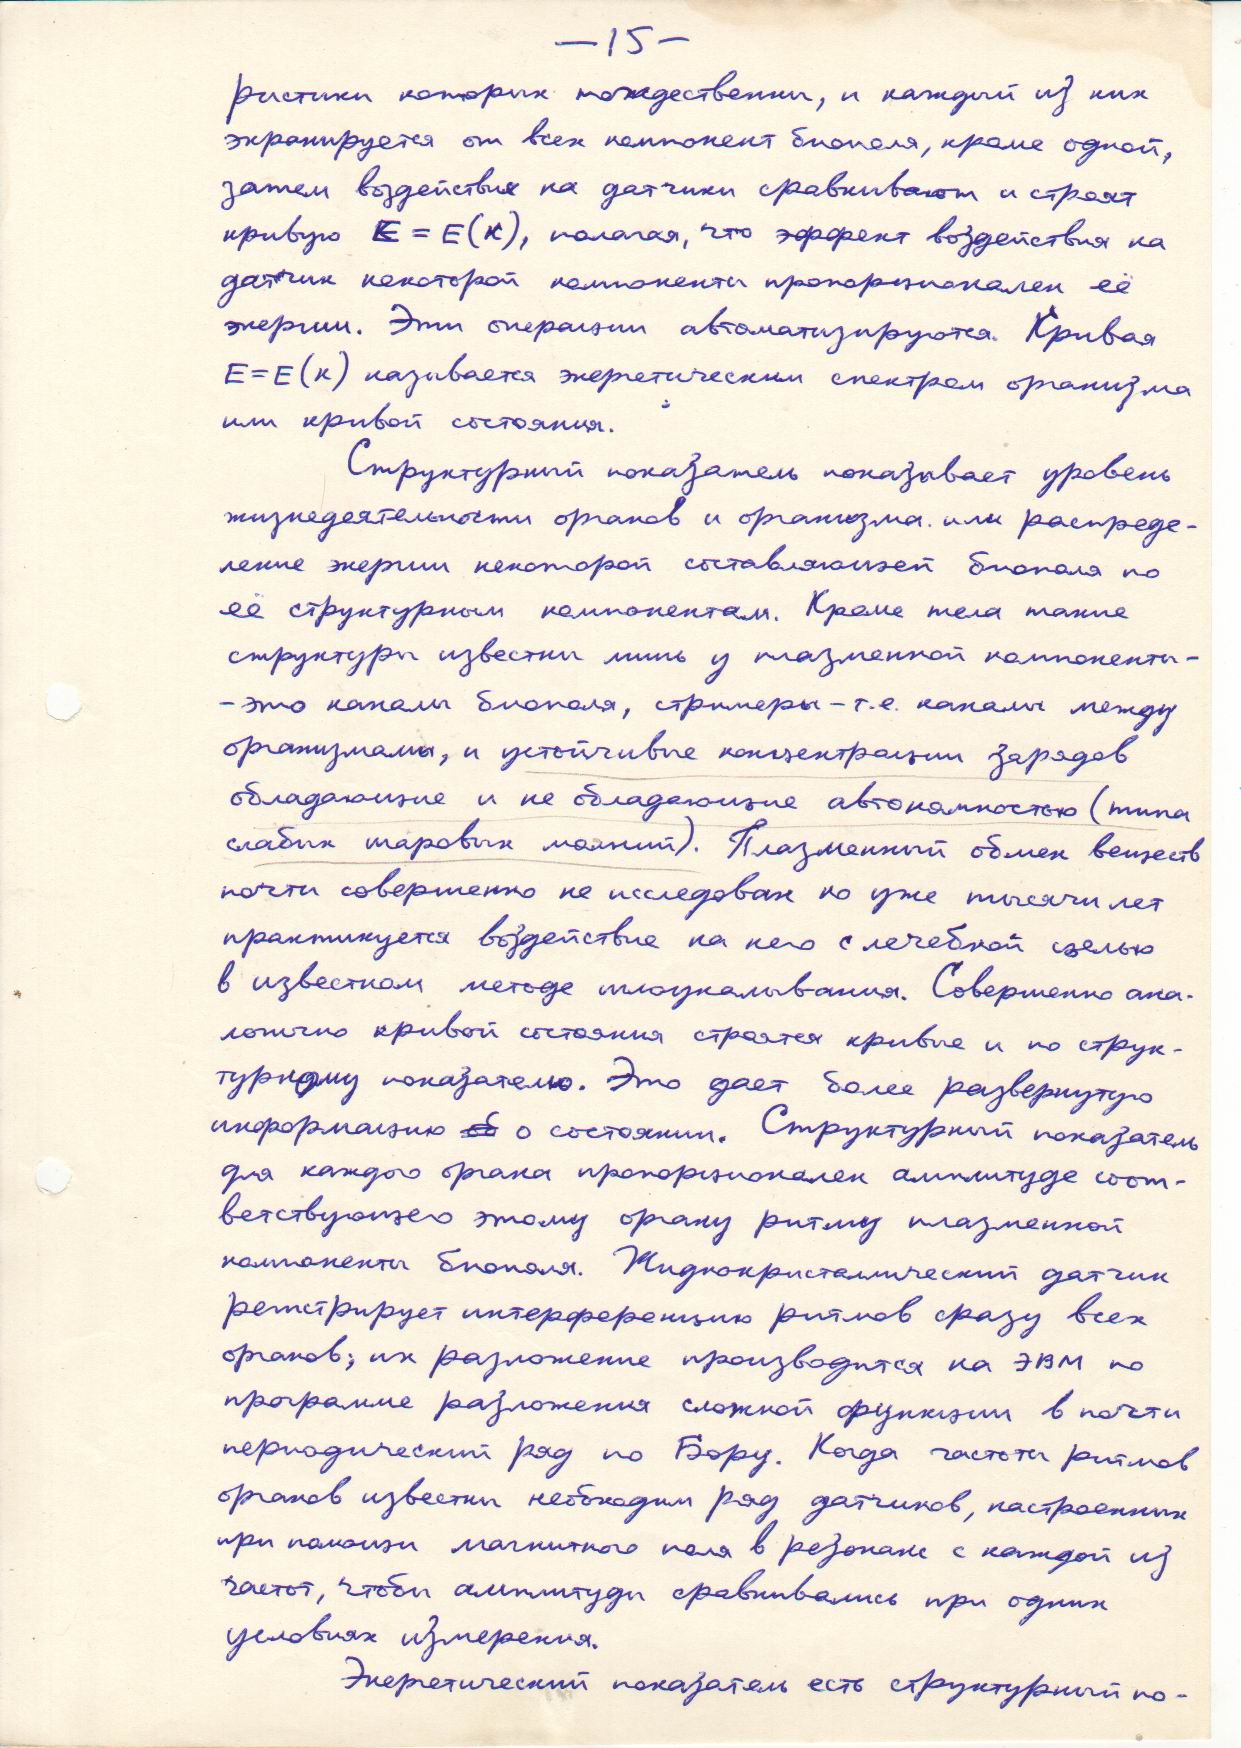 —15—
ристики которых тождественны, и каждый из них
экранируется от всех компонент биополя, кроме одной,
затем воздействия на датчики сравнивают и строят
кривую E = E(к), полагая, что эффект воздействия на
датчик некоторой компоненты пропорционален её
энергии. Эти операции автоматизируются. Кривая
E=E(к) называется энергетическим спектром организма
или кривой состояния.
Структурный показатель показывает уровень
жизнедеятельности органов и организма или распреде-
ление энергии некоторой составляющей биополя по
её структурным компонентам. Кроме тела такие
структуры известны лишь у плазменной компоненты-
-это каналы биополя, стримеры – т.е. каналы между
организмами, и устойчивые концентрации зарядов
обладающие и не обладающие автономностью (типа
слабых шаровых молний). Плазменный обмен веществ
почти совершенно не исследован но уже тысячи лет
практикуется воздействие на него с лечебной целью
в известном методе иглоукалывания. Совершенно ана-
логично кривой состояния строятся кривые и по струк-
турному показателю. Это дает более развернутую
информацию об о состоянии. Структурный показатель
для каждого органа пропорционален амплитуде соот-
ветствующего этому органу ритму плазменной
компоненты биополя. Жидкокристаллический датчик
регистрирует интерференцию ритмов сразу всех
органов; их разложение производится на ЭВМ по
программе разложения сложной функции в почти
периодический ряд по Бору. Когда частоты ритмов
органов известны необходим ряд датчиков, настроенных
при помощи магнитного поля в резонанс с каждой из
частот, чтобы амплитуды сравнивались при одних
условиях измерения.
Энергетический показатель есть структурный по-